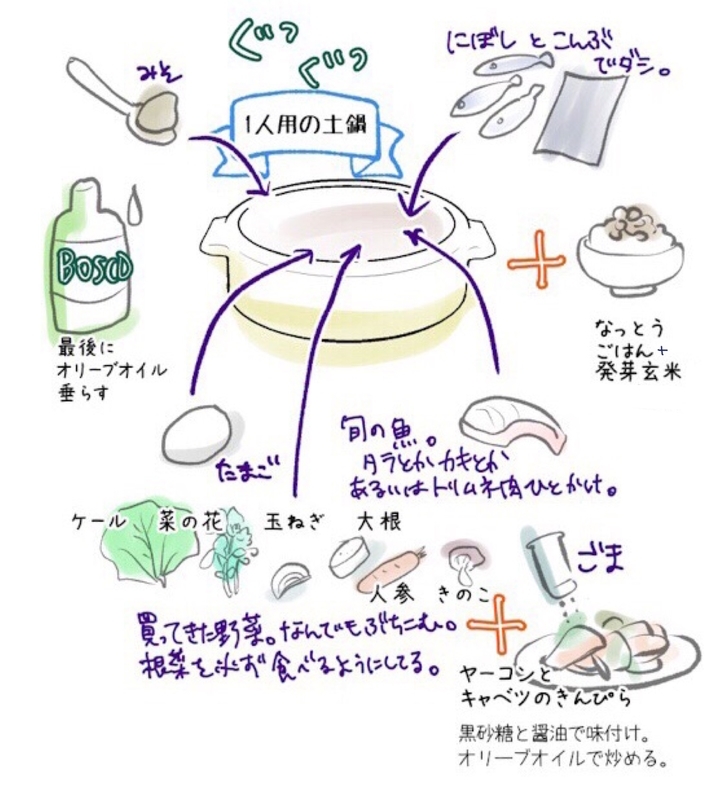 ぐつ
ぐつ
にぼし と こんぶ
でダシ。
みそ
1人用の土鍋
BOSCO
最後に
オリーブオイル
垂らす
なっとう
ごはん+
発芽玄米
たまご
旬の魚。
タラとかカキとか
あるいはトリムネ肉ひとかけ。
ケール 菜の花 玉ねぎ 大根
人参 きのこ
買ってきた野菜。なんでもぶちこむ。
根菜を必ず食べるようにしてる。
ごま
ヤーコンと
キャベツのきんぴら
黒砂糖と醤油で味付け。
オリーブオイルで炒める。